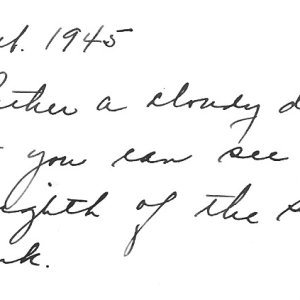 1945
ather a cloudy d
you can see
eighth of the s
nk.